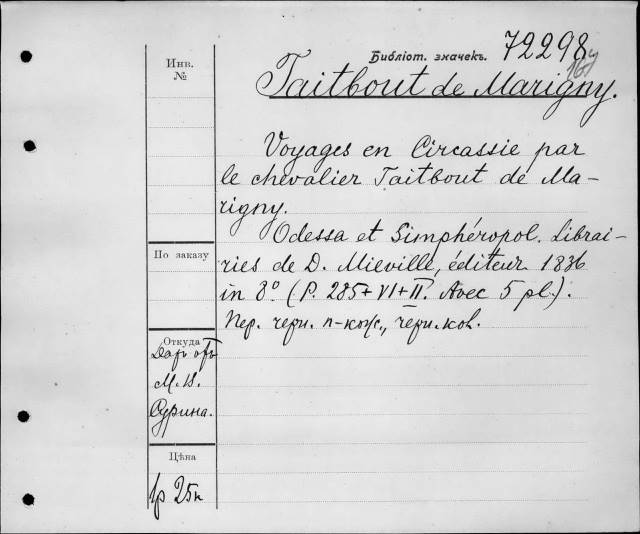 Библіот. значекъ. 72298
Инв.
№
Taitbout de Marigny.
Voyages en Circassie par
le chevalier Taitbout de Ma-
rigny.
Odessa et Simphéropol. Librai-
ries de D. Miéville, éditeur 1836
in 8° (P. 285+VI+II. Avec 5 pl.).
Пер. черн. п-кож., черн. кол.
По заказу
Откуда
Даръ отъ
М. В.
Сурина.
Цѣна
1р 25к